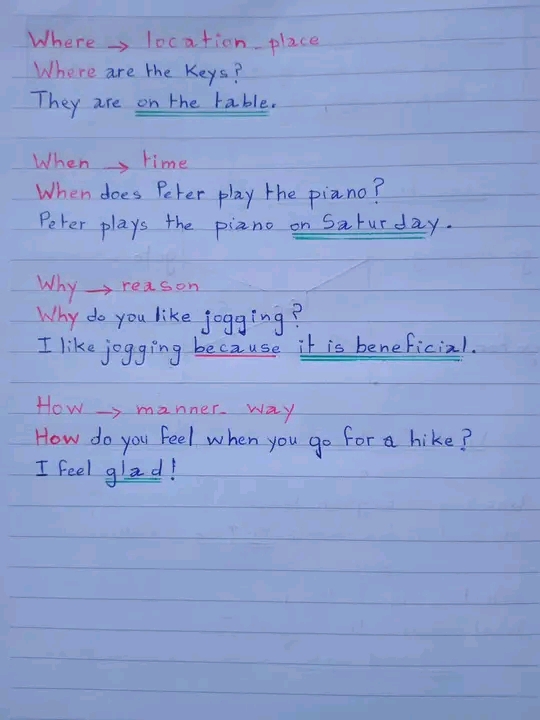 Where → location - place
Where are the Keys?
They are on the table.
When → time
When does Peter play the piano?
Peter plays the piano on Saturday.
Why → reason
Why do you like jogging?
I like jogging because it is beneficial.
How → manner - way
How do you feel when you go for a hike?
I feel glad!